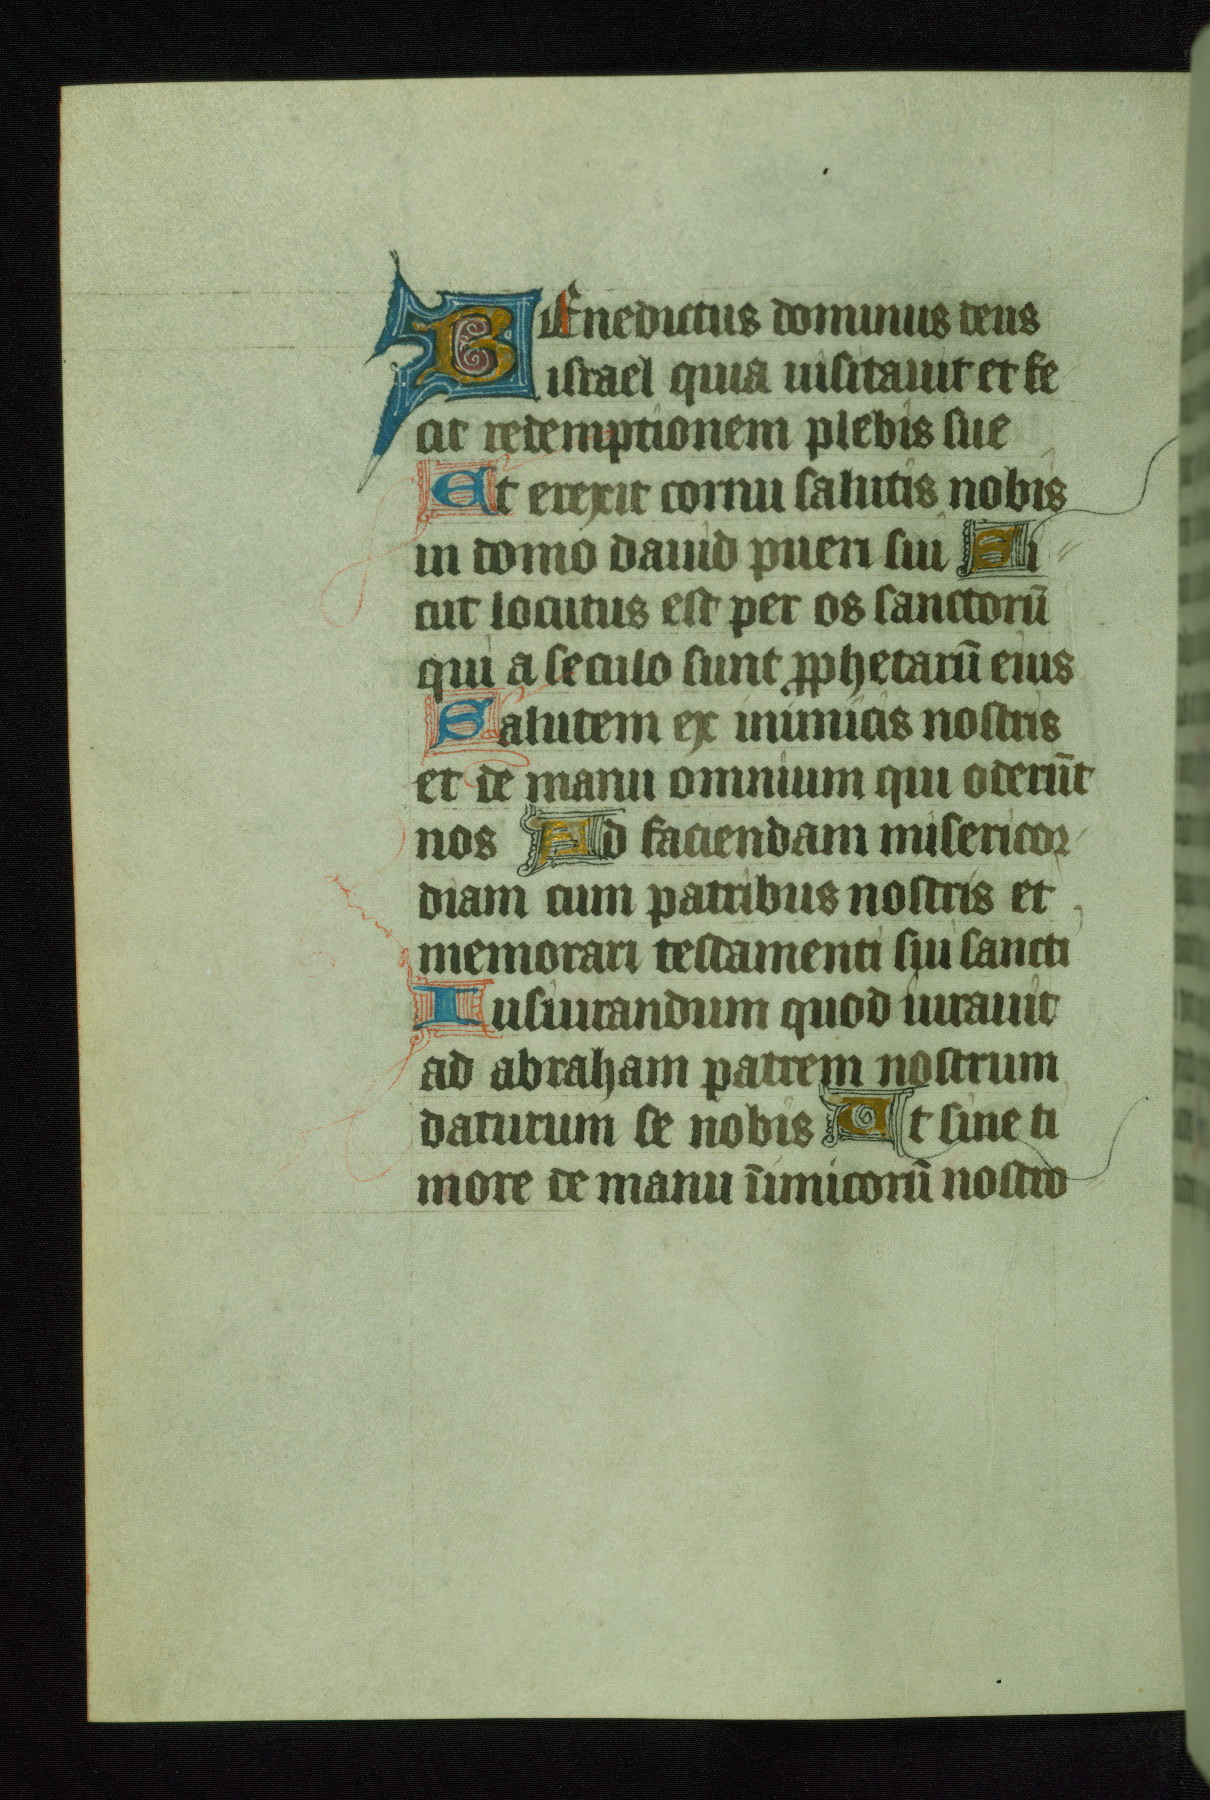 BEnedictus dominus deus
israel quia uisitauit et fe
cit redemptionem plebis sue
Et erexit cornu salutis nobis
in domo dauid pueri sui Si
cut locutus est per os sanctorū
qui a seculo sunt prophetarū eius
Salutem ex inimicis nostris
et de manu omnium qui oderūt
nos Ad faciendam misericor
diam cum patribus nostris et
memorari testamenti sui sancti
Iusiurandum quod iurauit
ad abraham patrem nostrum
daturum se nobis Ut sine ti
more de manu īimicorū nostro